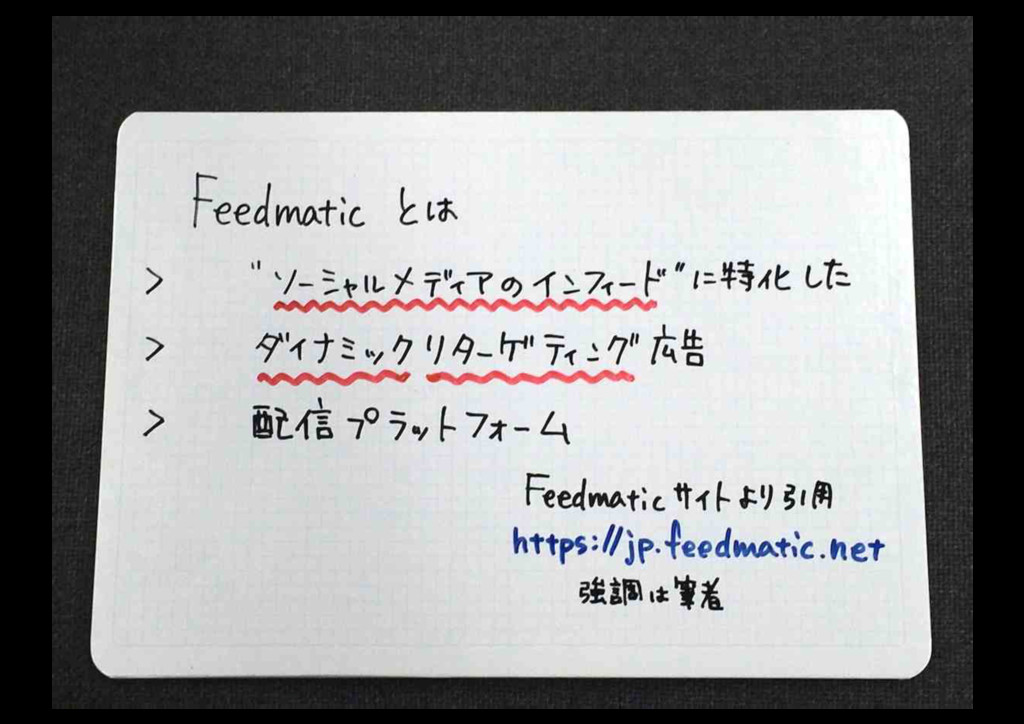 Feedmatic とは
> "ソーシャルメディアのインフィード"に特化した
> ダイナミックリターゲティング広告
> 配信プラットフォーム
Feedmaticサイトより引用
https://jp.feedmatic.net
強調は筆者